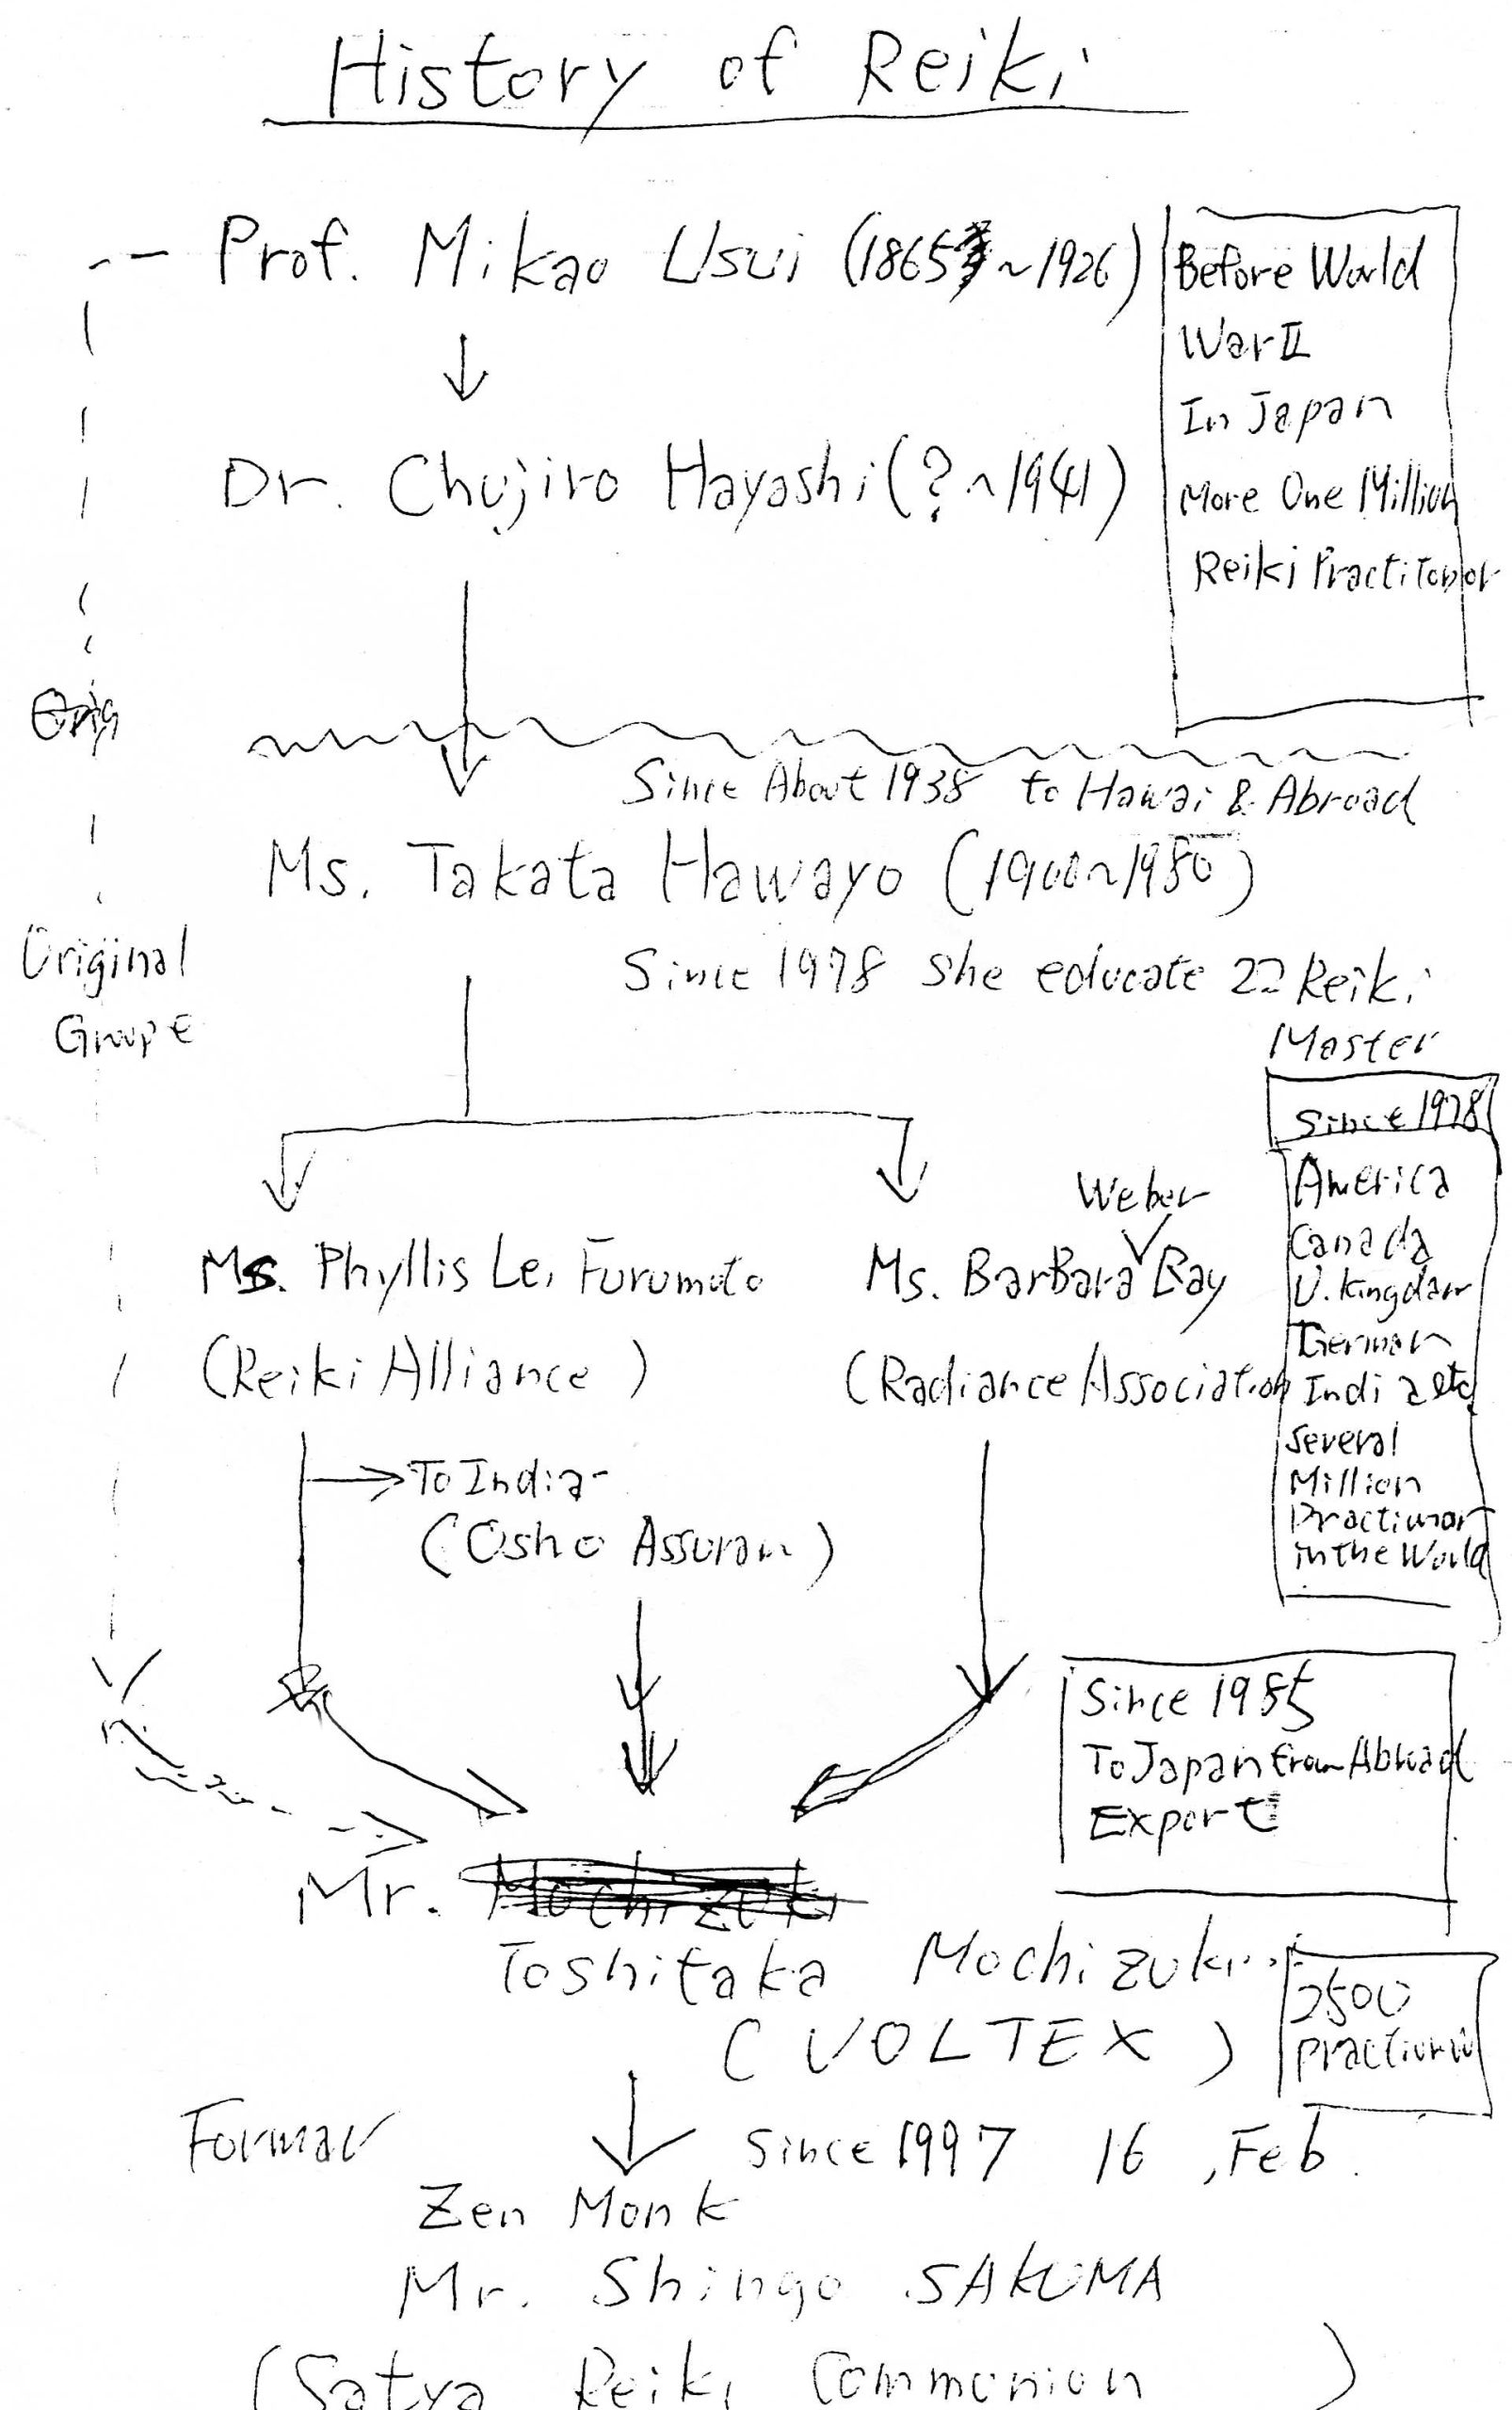 History of Reiki
Prof. Mikao Usui (1865 ~ 1926)
Before World
War II
In Japan
More One Million
Reiki Practitonor
Dr. Chujiro Hayashi (? ~ 1941)
Orig
Since About 1938 to Hawai & Abroad
Ms. Takata Hawayo (1900 ~ 1980)
Original
Groupe
Since 1978 she educate 22 Reiki
Master
Since 1978
America
Canada
U. Kingdam
German
India etc
Several
Million
Practiunor
in the World
Weber
Ms. Phyllis Lei Furumoto
Ms. BarBara Bay
(Reiki Alliance)
(Radiance Association
To India
(Osho Assuram)
Since 1985
To Japan from Abroad
Export
Mr. Mochizuki
Toshitaka Mochizuki
(VOLTEX)
2500
Formar
Since 1997 16, Feb.
Zen Monk
Mr. Shingo SAKUMA
(Satya Reiki Communion)